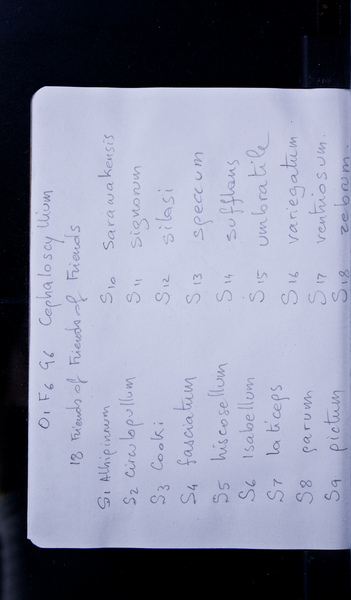 O1 F6 G6 Cephaloscyllium
18 Friends of Friends of Friends
S1 Albipinnum
S2 circulopullum
S3 Cooki
S4 fasciatum
S5 hiscosellum
S6 Isabellum
S7 laticeps
S8 parvum
S9 pictum
S10 Sarawakensis
S11 signorum
S12 silasi
S13 speccum
S14 sufflans
S15 umbratile
S16 variegatum.
S17 ventriosum.
S18 zebrum.